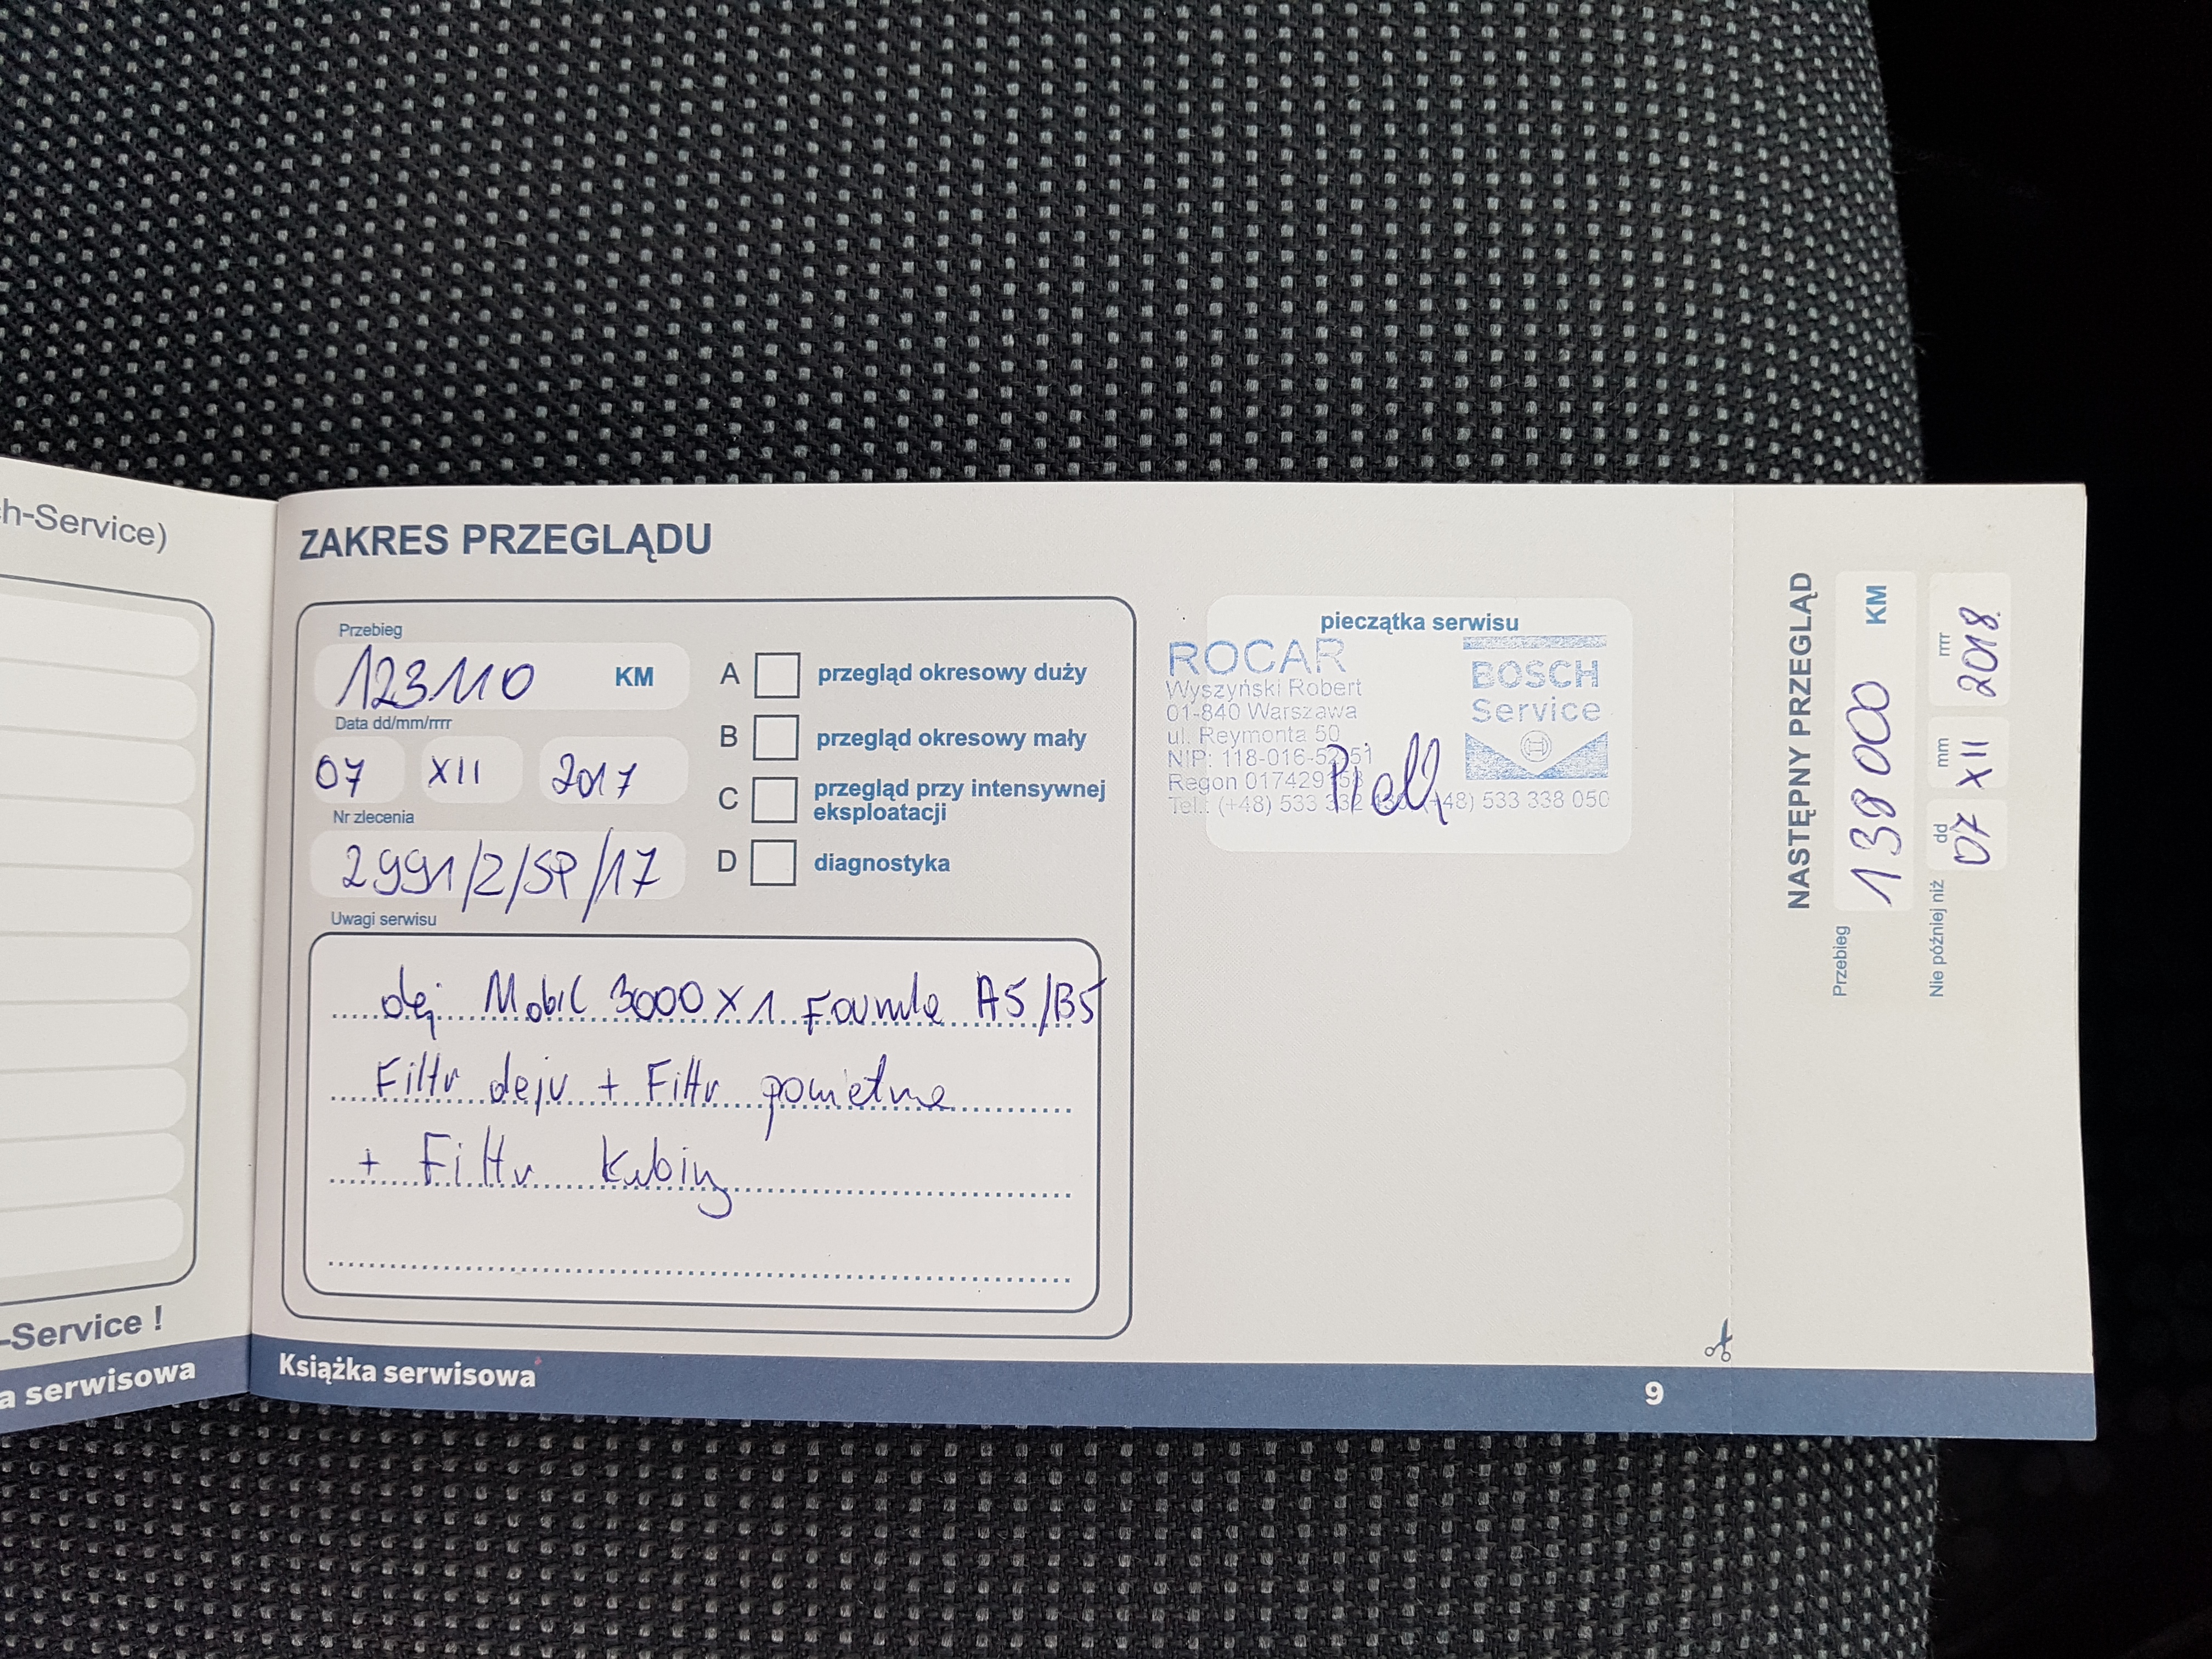 ch-Service)
-Service !
a serwisowa
ZAKRES PRZEGLĄDU
Przebieg
123110 KM
Data dd/mm/rrrr
07 XII 2017
Nr zlecenia
2991/2/SP/17
A przegląd okresowy duży
B przegląd okresowy mały
C przegląd przy intensywnej
eksploatacji
D diagnostyka
Uwagi serwisu
olej Mobil 3000 x 1 Formula A5/B5
Filtr oleju + Filtr powietrza
+ Filtr Kabiny
pieczątka serwisu
ROCAR
Wyszyński Robert
01-840 Warszawa
ul. Reymonta 50
NIP: 118-016-
Regon
Tel.: (+48) 533 +48) 533 338 050
BOSCH
Service
NASTĘPNY PRZEGLĄD
Przebieg
138 000 KM
Nie później niż
dd mm rrrr
07 XII 2018
Książka serwisowa
9